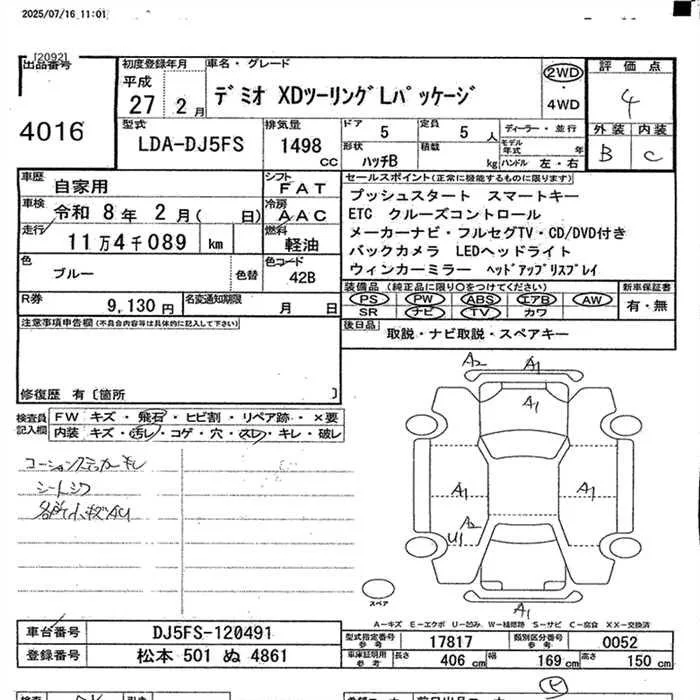 2025/07/16 11:01
[2092]
出品番号
4016
初度登録年月
平成
27 2月
車名・グレード
デミオ XDツーリングLパッケージ
2WD
・
4WD
評価点
4
外装 内装
B C
型式
LDA-DJ5FS
排気量
1498
CC
ドア 5
定員 5 人
ディーラー・並行
形状
ハッチB
積載 kg
モデル年式 年
ハンドル 左・右
車歴
自家用
シフト
FAT
車検
令和 8年 2月( 日)
冷房
AAC
走行
11万4千089 km
燃料
軽油
色
ブルー
色替
色コード
42B
R券
9,130円
名変通知期限
月 日
セールスポイント(正常に機能するものに限ります)
プッシュスタート スマートキー
ETC クルーズコントロール
メーカーナビ・フルセグTV・CD/DVD付き
バックカメラ LEDヘッドライト
ウィンカーミラー ヘッドアップリスプレイ
装備品(純正品に限り○をつけてください)
PS PW ABS エアB AW
SR ナビ TV カワ
新車保証書
有・無
後日品
取説・ナビ取説・スペアキー
注意事項申告欄(不具合内容等は具体的に記入して下さい)
修復歴 有〔箇所 〕
検査員記入欄
FW キズ・飛石・ヒビ割・リペア跡・×要
内装 キズ・汚レ・コゲ・穴・スレ・キレ・破レ
コーションステッカーキレ
シートシワ
各所小キズAU
A2 A1
A1
A1 A1
A2
U1
A1
スペア
A-キズ E-エクボ U-凹み W-補修跡 S-サビ C-腐食 XX-交換済
車台番号
DJ5FS-120491
登録番号
松本 501 ぬ 4861
型式指定番号
参考
17817
類別区分番号
参考
0052
車庫証明用
参考
長さ 406 cm
幅 169 cm
高さ 150 cm